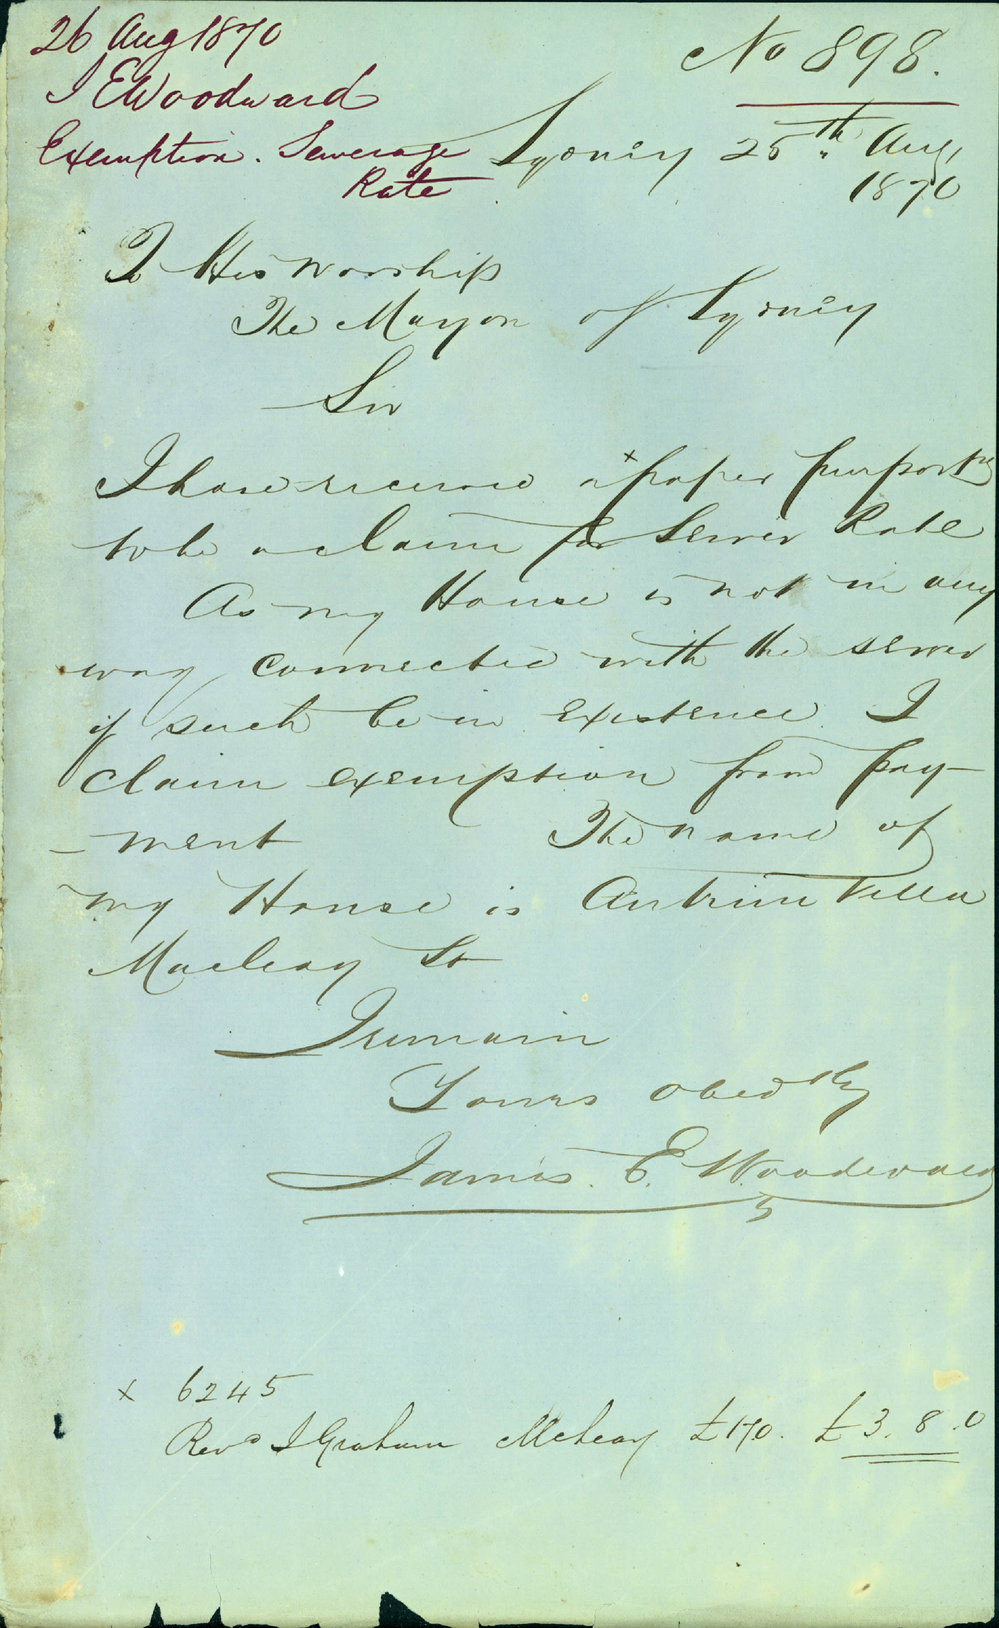 26 Aug 1870
J E Woodward
Exemption. Sewerage
Rate
No 898.
Sydney 25th Aug,
1870
To His Worship
The Mayor of Sydney
Sir
I have received a x paper purportg
to be a claim for Sewer Rate
As my House is not in any
way connected with the sewer
if such be in existence I
claim exemption from pay-
-ment The name of
my House is Antrim Villa
Macleay St
I remain
Yours obedtly
James. E. Woodward
x 6245
Revd J Graham Mcleay £170. £3.8.0